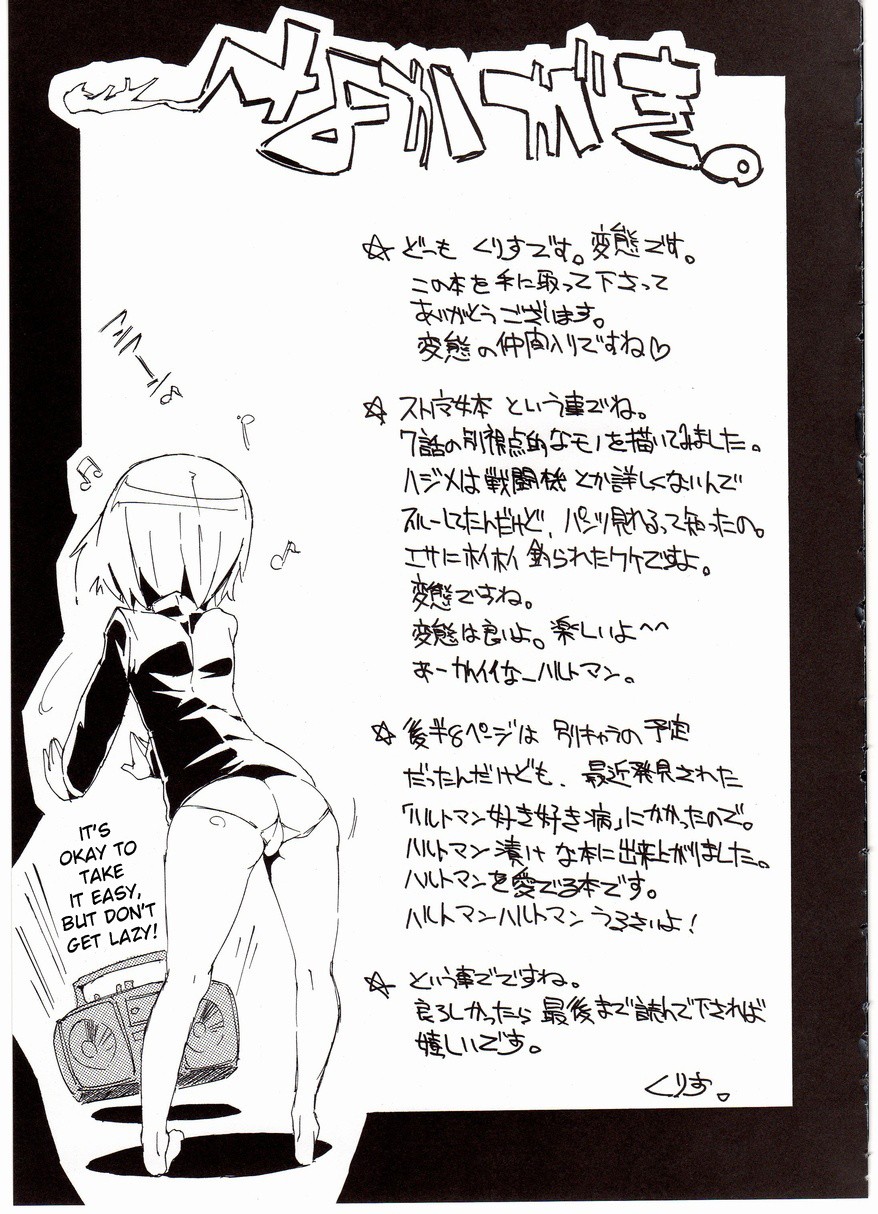 なかがき。
☆ どーも くりすです。変態です。
この本を手に取って下さって
ありがとうございます。
変態の仲間入りですね♡
☆ スト魔女本 という事でね。
7話の別視点的なモノを描いてみました。
ハジメは戦闘機とか詳しくないんで
スルーしてたんだけど、パンツ見れるって知ったの。
エサにホイホイ釣られたワケですよ。
変態ですね。
変態は良いよ。楽しいよ^^
あーかわイイなーハルトマン。
☆ 後半8ページは 別キャラの予定
だったんだけども、最近発見された
「ハルトマン好き好き病」にかかったので。
ハルトマン漬けな本に出来上がりました。
ハルトマンを愛でる本です。
ハルトマンハルトマンうるさいよ!
☆ という事でですね。
良ろしかったら最後まで読んで下されば
嬉しいです。
くりす。
IT'S
OKAY TO
TAKE
IT EASY,
BUT DON'T
GET LAZY!